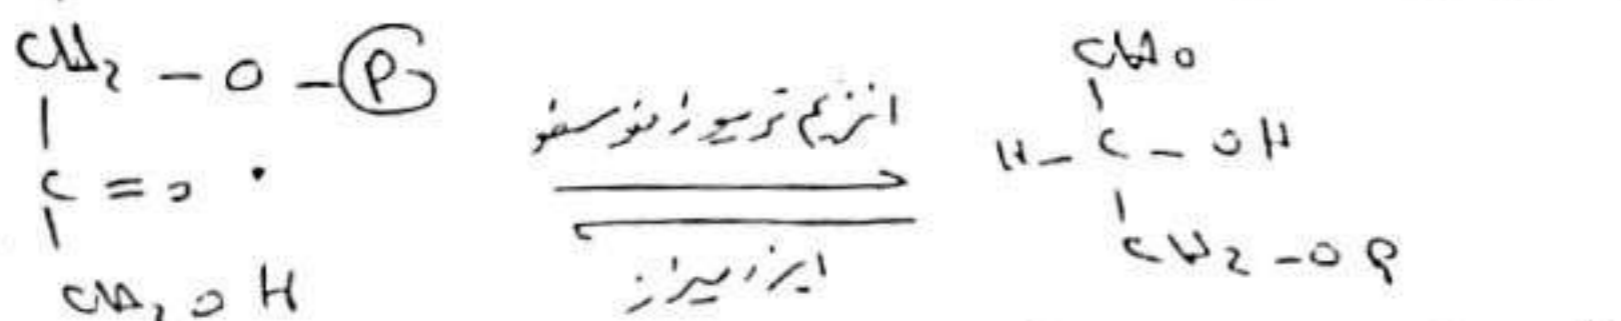 CH₂ - O - Ⓟ
C = O
CH₂ O H
انزیم تریوز فوسفو
ایزومیراز
CHO
H - C - OH
CH₂ - O P